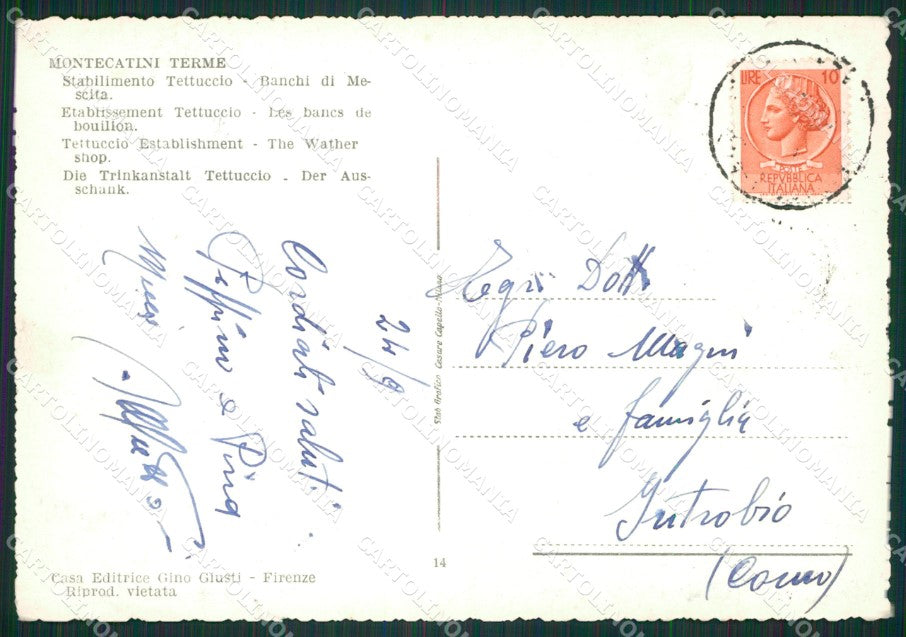 MONTECATINI TERME
Stabilimento Tettuccio - Banchi di Me-
scita.
Etablissement Tettuccio - Les bancs de
bouillon.
Tettuccio Establishment - The Wather
shop.
Die Trinkanstalt Tettuccio - Der Aus-
schank.
LIRE 10
POSTE
REPVBBLICA
ITALIANA
24/9
Cordiali saluti
Peppino e Pina
Egri Dott
Piero Magni
e famiglia
Introbio
(Como)
Stab Grafico Cesare Capello - Milano
14
Casa Editrice Gino Giusti - Firenze
Riprod. vietata
CARTOLINOMANIA